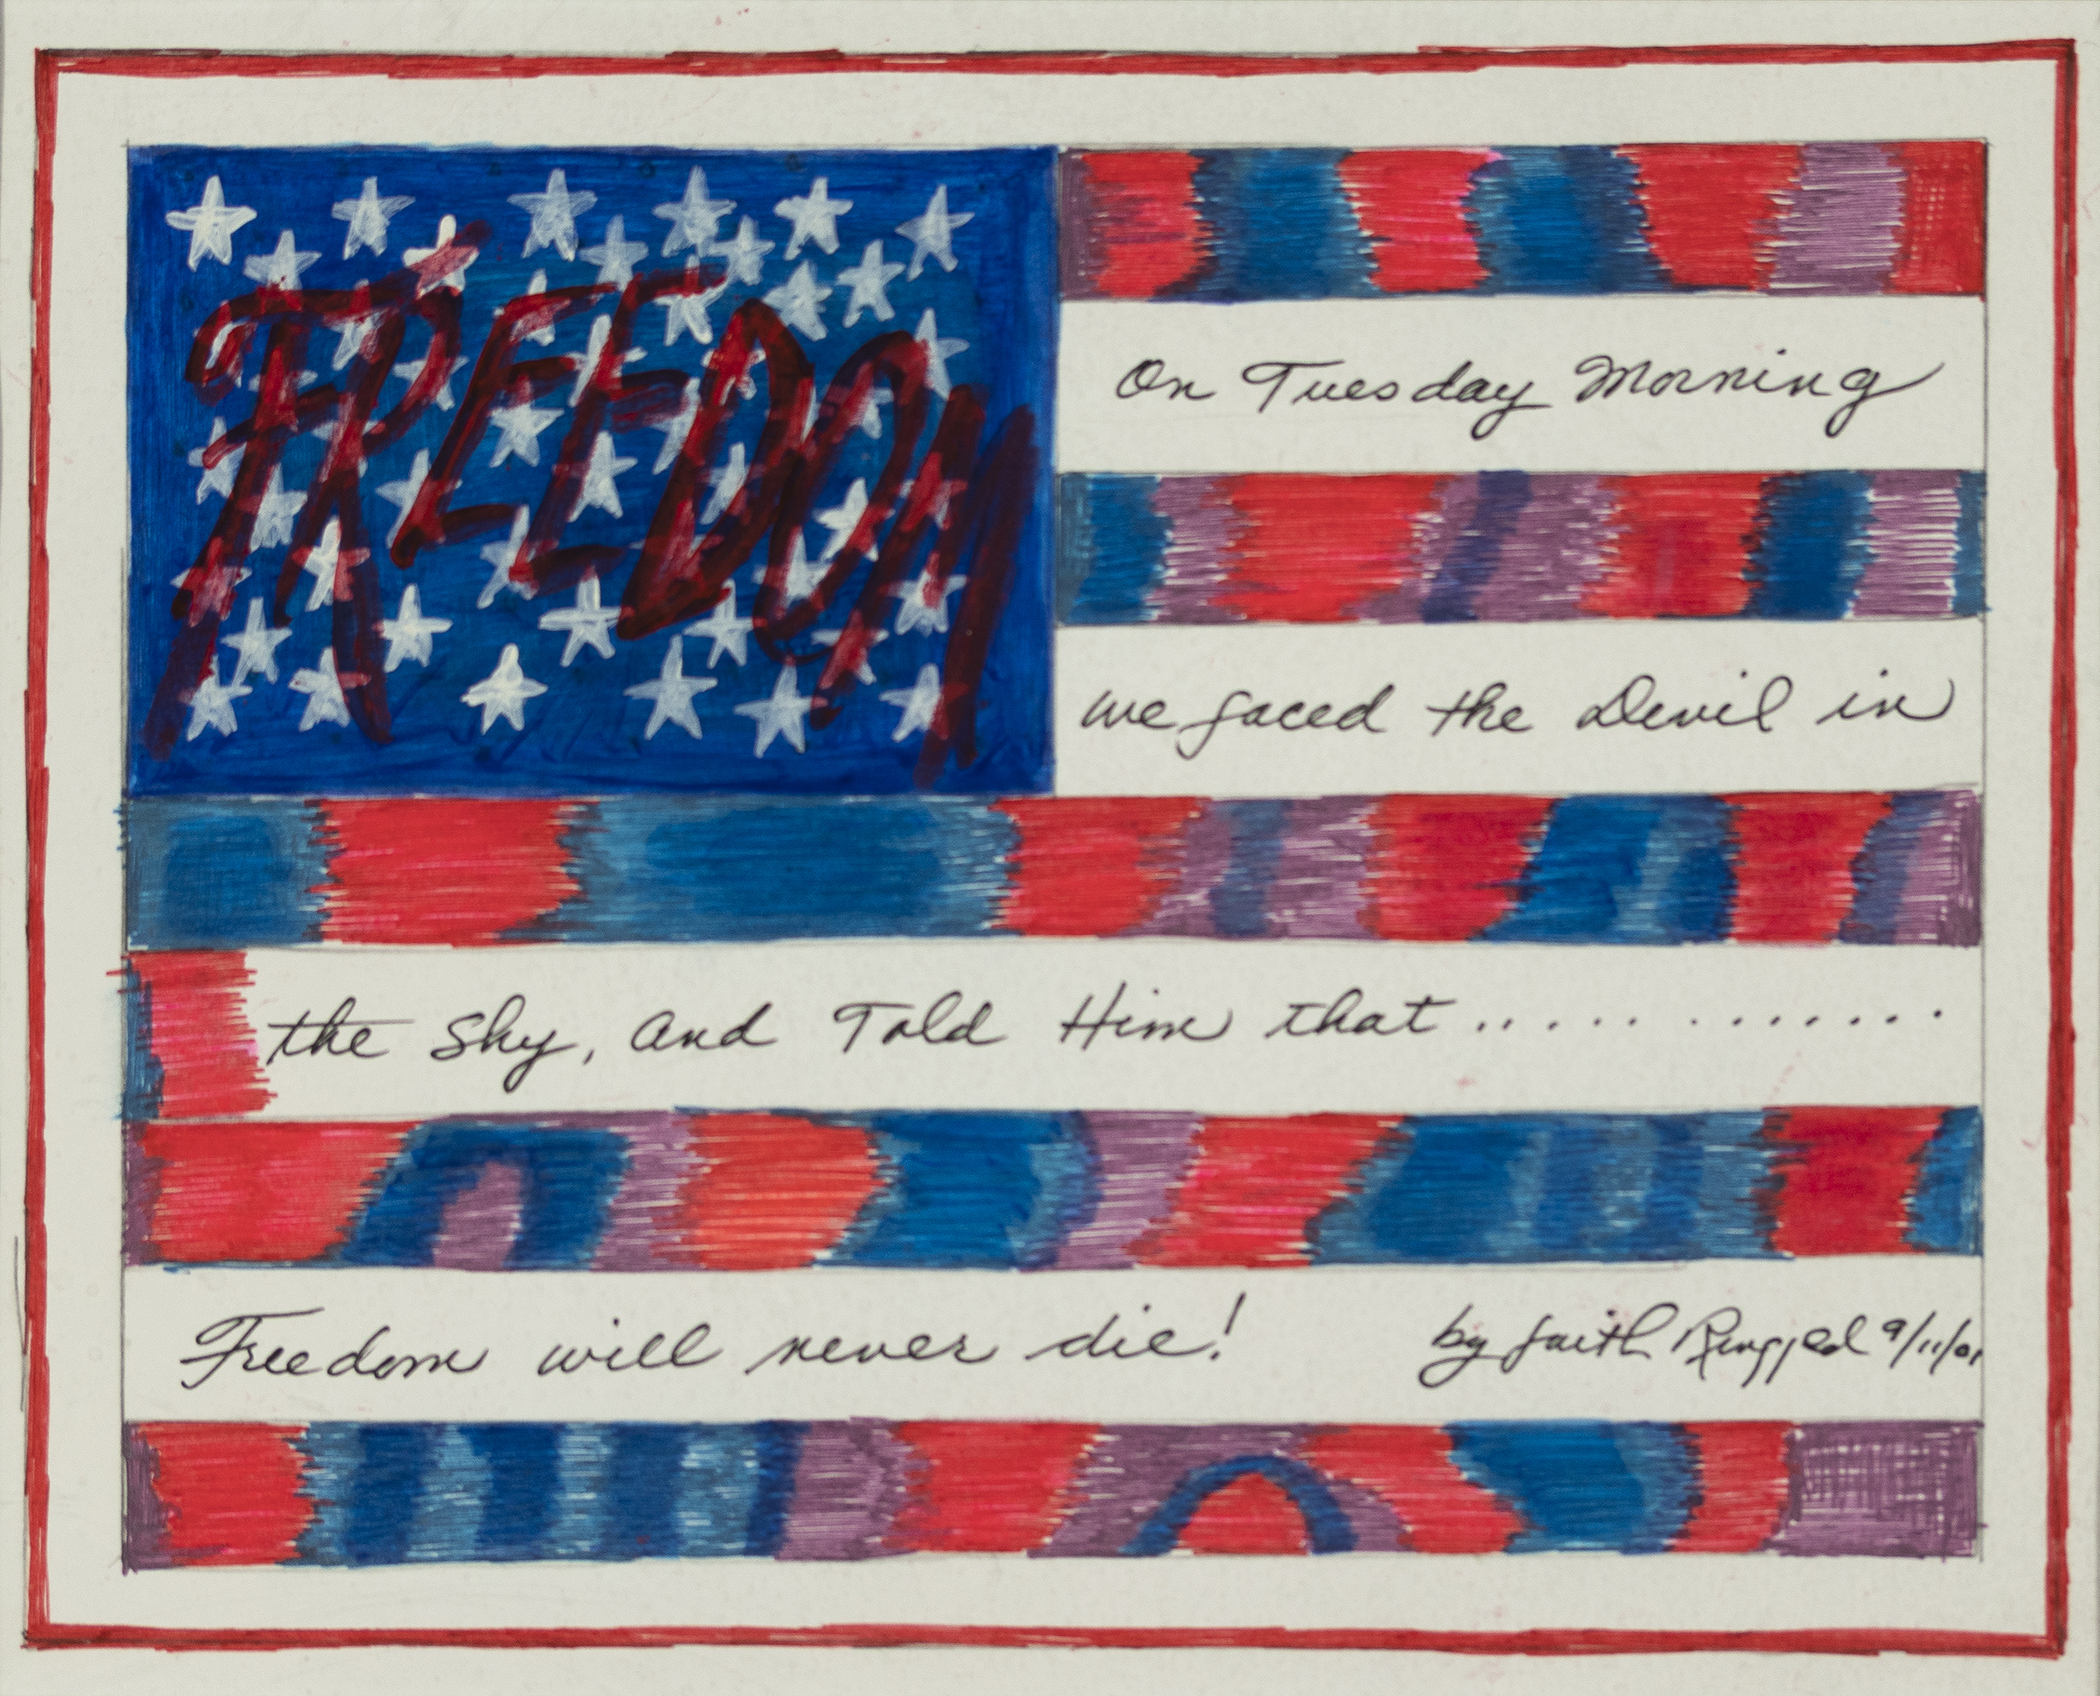 FREEDOM
On Tuesday Morning
we faced the Devil in
the Sky, and Told Him that.. . . . . . . . . . . . .
Freedom will never die!
by Faith Ringgold 9/11/01